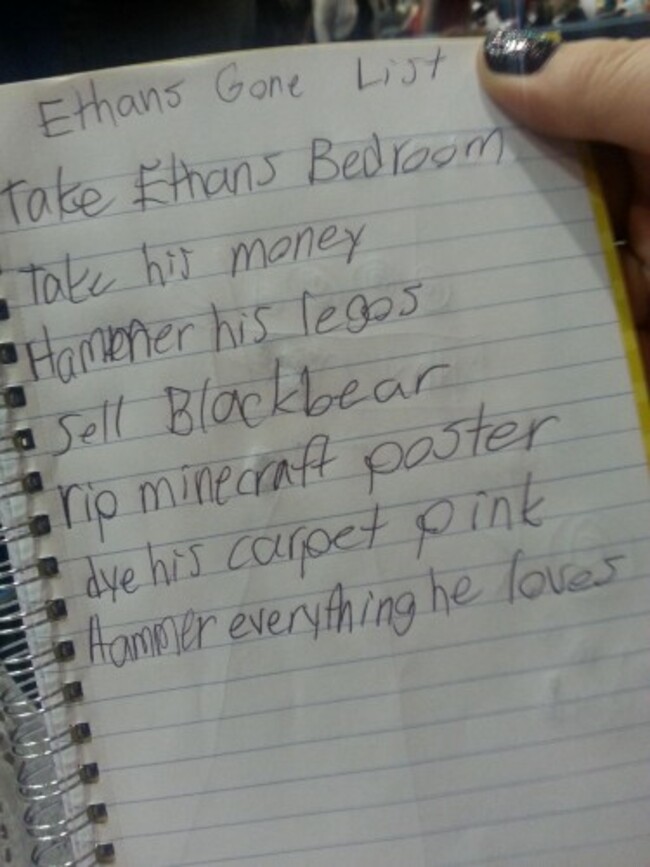 Ethans Gone List
Take Ethans Bedroom
Take his money
Hammer his legos
Sell Blackbear
rip minecraft poster
dye his carpet pink
Hammer everything he loves